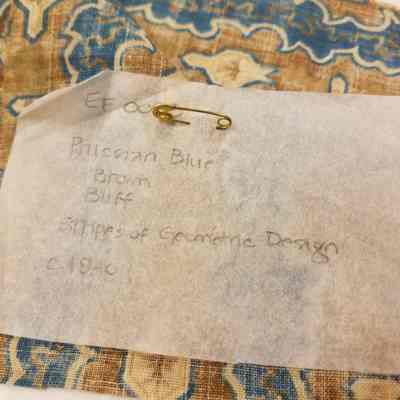 EE 00
Prussian Blue
Brown
Buff
Stripes of Geometric Design